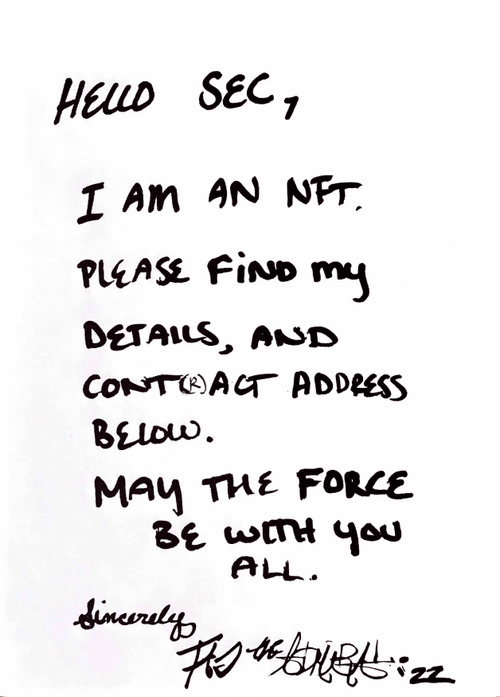 HELLO SEC,
I AM AN NFT.
PLEASE FIND MY
DETAILS, AND
CONT(R)ACT ADDRESS
BELOW.
MAY THE FORCE
BE WITH YOU
ALL.
Sincerely
:22